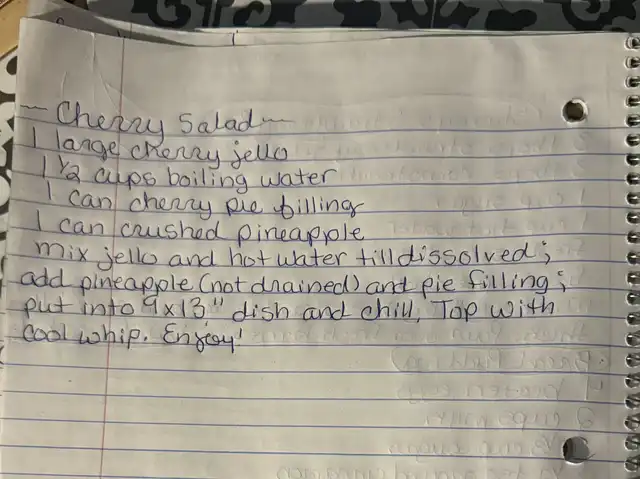 — Cherry Salad —
1 large cherry jello
1 1/2 cups boiling water
1 can cherry pie filling
1 can crushed pineapple
mix jello and hot water till dissolved;
add pineapple (not drained) and pie filling;
put into 9x13" dish and chill, Top with
cool whip. Enjoy!